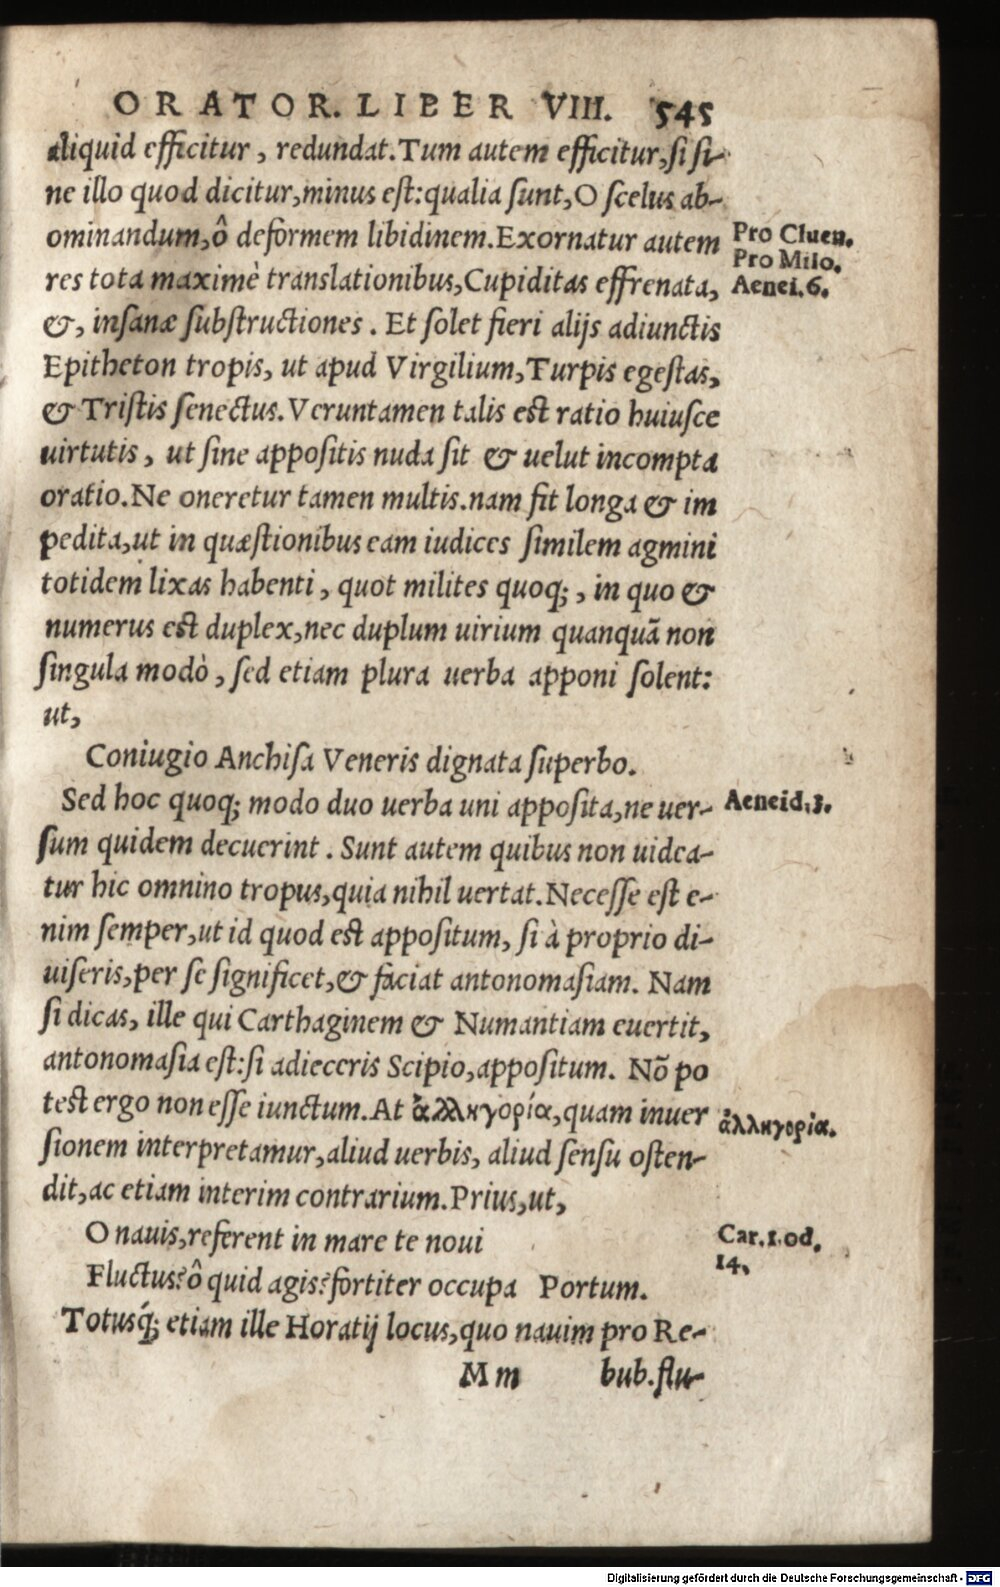 ORATOR. LIBER VIII. 545
aliquid efficitur, redundat. Tum autem efficitur, si si-
ne illo quod dicitur, minus est: qualia sunt, O scelus ab-
ominandum, ô deformem libidinem. Exornatur autem
Pro Cluen.
Pro Milo.
res tota maximè translationibus, Cupiditas effrenata,
Aenei. 6.
&, insanæ substructiones. Et solet fieri alijs adiunctis
Epitheton tropis, ut apud Virgilium, Turpis egestas,
& Tristis senectus. Veruntamen talis est ratio huiusce
uirtutis, ut sine appositis nuda sit & uelut incompta
oratio. Ne oneretur tamen multis. nam fit longa & im
pedita, ut in quæstionibus eam iudices similem agmini
totidem lixas habenti, quot milites quoq;, in quo &
numerus est duplex, nec duplum uirium quanquã non
singula modò, sed etiam plura uerba apponi solent:
ut,
Coniugio Anchisa Veneris dignata superbo.
Sed hoc quoq; modo duo uerba uni apposita, ne uer-
Aeneid. 3.
sum quidem decuerint. Sunt autem quibus non uidea-
tur hic omnino tropus, quia nihil uertat. Necesse est e-
nim semper, ut id quod est appositum, si à proprio di-
uiseris, per se significet, & faciat antonomasiam. Nam
si dicas, ille qui Carthaginem & Numantiam euertit,
antonomasia est: si adieceris Scipio, appositum. Nõ po
test ergo non esse iunctum. At ἀλληγορία, quam inuer
ἀλληγορία.
sionem interpretamur, aliud uerbis, aliud sensu osten-
dit, ac etiam interim contrarium. Prius, ut,
O nauis, referent in mare te noui
Car. 1. od.
14.
Fluctus? ô quid agis? fortiter occupa Portum.
Totusq́; etiam ille Horatij locus, quo nauim pro Re-
Mm bub. flu-
Digitalisierung gefördert durch die Deutsche Forschungsgemeinschaft - DFG